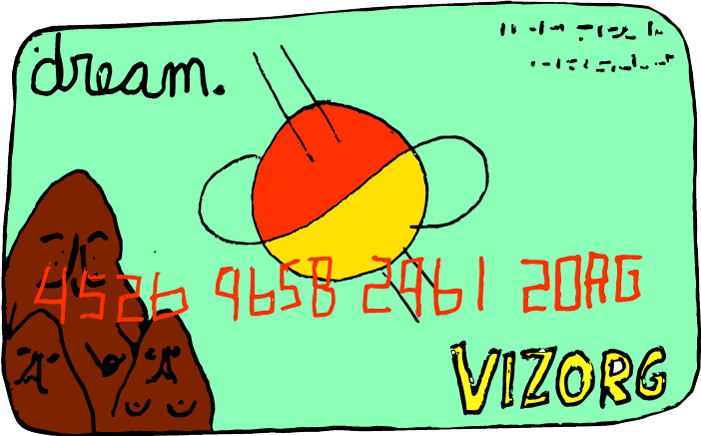 dream.
4526 9658 2961 20AG
VIZORG